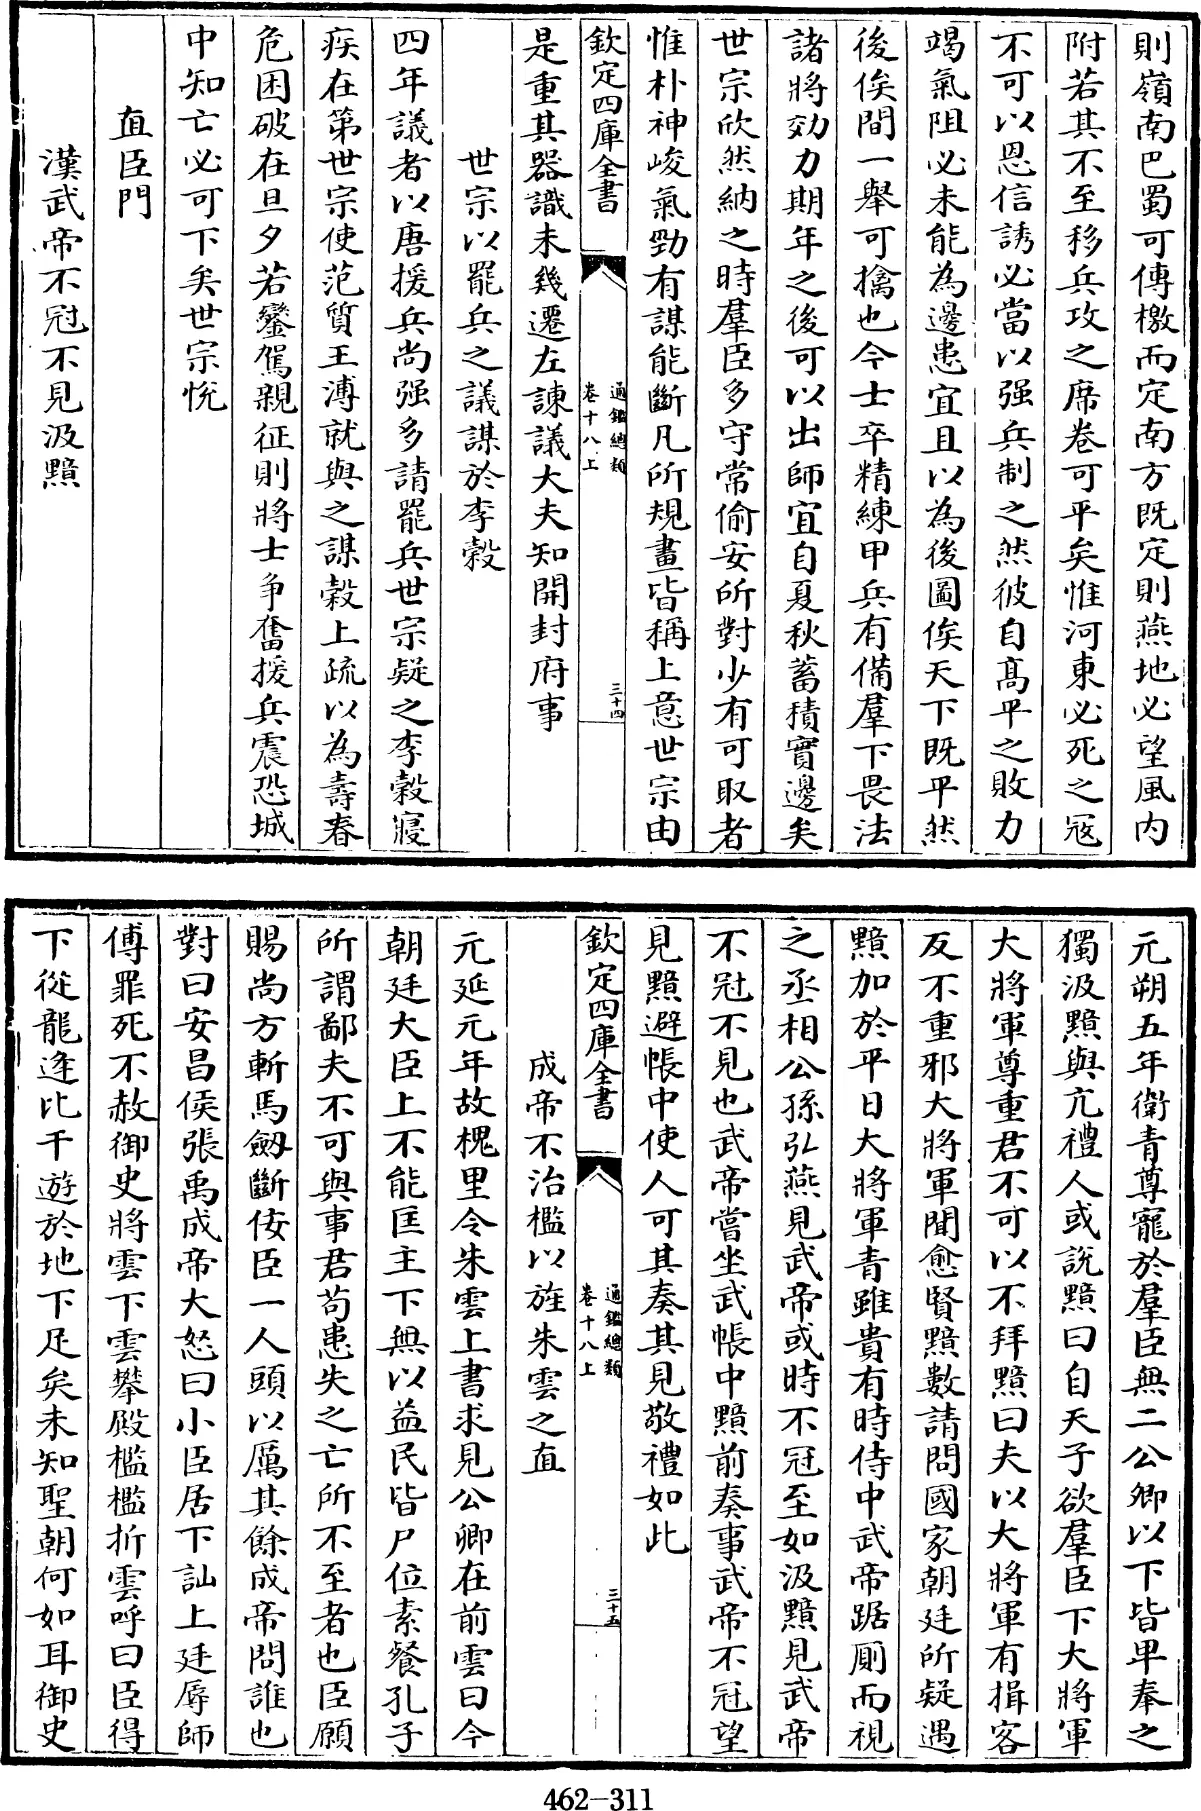 則嶺南巴蜀可傳檄而定南方既定則燕地必望風内
附若其不至移兵攻之席卷可平矣惟河東必死之寇
不可以恩信誘必當以强兵制之然彼自髙平之敗力
竭氣阻必未能為邊患宜且以為後圖俟天下既平然
後俟間一舉可擒也今士卒精練甲兵有備羣下畏法
諸將効力期年之後可以出師宜自夏秋蓄積實邊矣
世宗欣然納之時羣臣多守常偷安所對少有可取者
惟朴神峻氣勁有謀能斷凡所規畫皆稱上意世宗由
欽定四庫全書
通鑑總類
卷十八上
三十四
是重其器識未幾遷左諫議大夫知開封府事
世宗以罷兵之議謀於李穀
四年議者以唐援兵尚强多請罷兵世宗疑之李穀寢
疾在第世宗使范質王溥就與之謀穀上疏以為壽春
危困破在旦夕若鑾駕親征則將士争奮援兵震恐城
中知亡必可下矣世宗悦
直臣門
漢武帝不冠不見汲黯
元朔五年衛青尊寵於羣臣無二公卿以下皆卑奉之
獨汲黯與亢禮人或說黯曰自天子欲羣臣下大將軍
大將軍尊重君不可以不拜黯曰夫以大將軍有揖客
反不重邪大將軍聞愈賢黯數請問國家朝廷所疑遇
黯加於平日大將軍青雖貴有時侍中武帝踞厠而視
之丞相公孫弘燕見武帝或時不冠至如汲黯見武帝
不冠不見也武帝嘗坐武帳中黯前奏事武帝不冠望
見黯避帳中使人可其奏其見敬禮如此
欽定四庫全書
通鑑總類
卷十八上
三十五
成帝不治檻以旌朱雲之直
元延元年故槐里令朱雲上書求見公卿在前雲曰今
朝廷大臣上不能匡主下無以益民皆尸位素餐孔子
所謂鄙夫不可與事君苟患失之亡所不至者也臣願
賜尚方斬馬劔斷佞臣一人頭以厲其餘成帝問誰也
對曰安昌侯張禹成帝大怒曰小臣居下訕上廷辱師
傅罪死不赦御史將雲下雲攀殿檻檻折雲呼曰臣得
下從龍逄比干遊於地下足矣未知聖朝何如耳御史
462-311